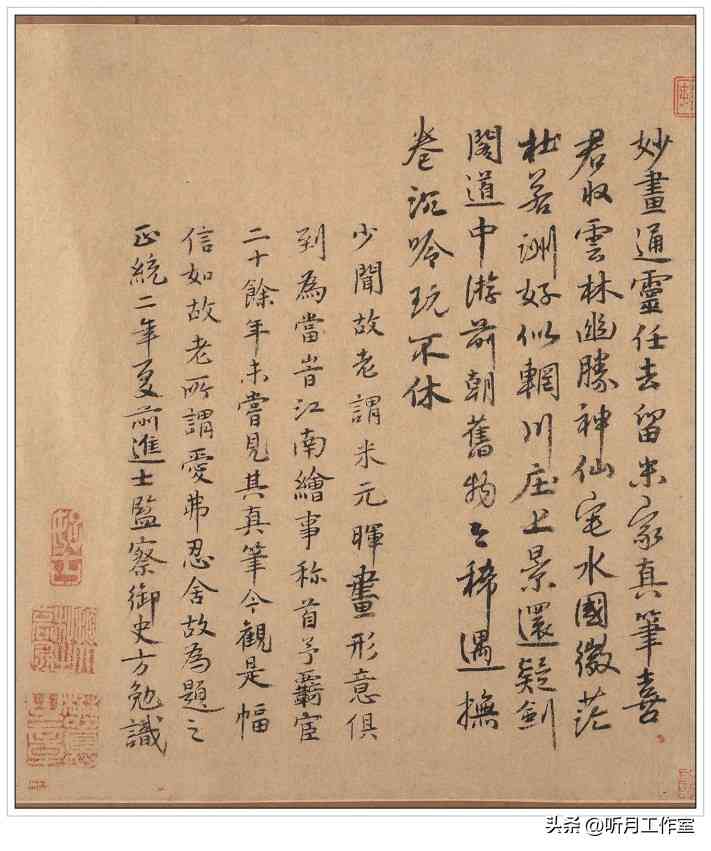 妙畫通靈任去留米家真筆喜
君收雲林幽勝神仙宅水國微茫
杜若洲好似輞川庄上景還疑劍
閣道中游前朝舊物稀遇撫
卷沉吟玩不休
少聞故老謂米元暉畫形意俱
到為當旹江南繪事称首予覊宦
二十餘年未嘗見其真筆今觀是幅
信如故老所謂愛弗忍舍故為題之
正統二年夏前進士監察御史方勉識
头条 @听月工作室